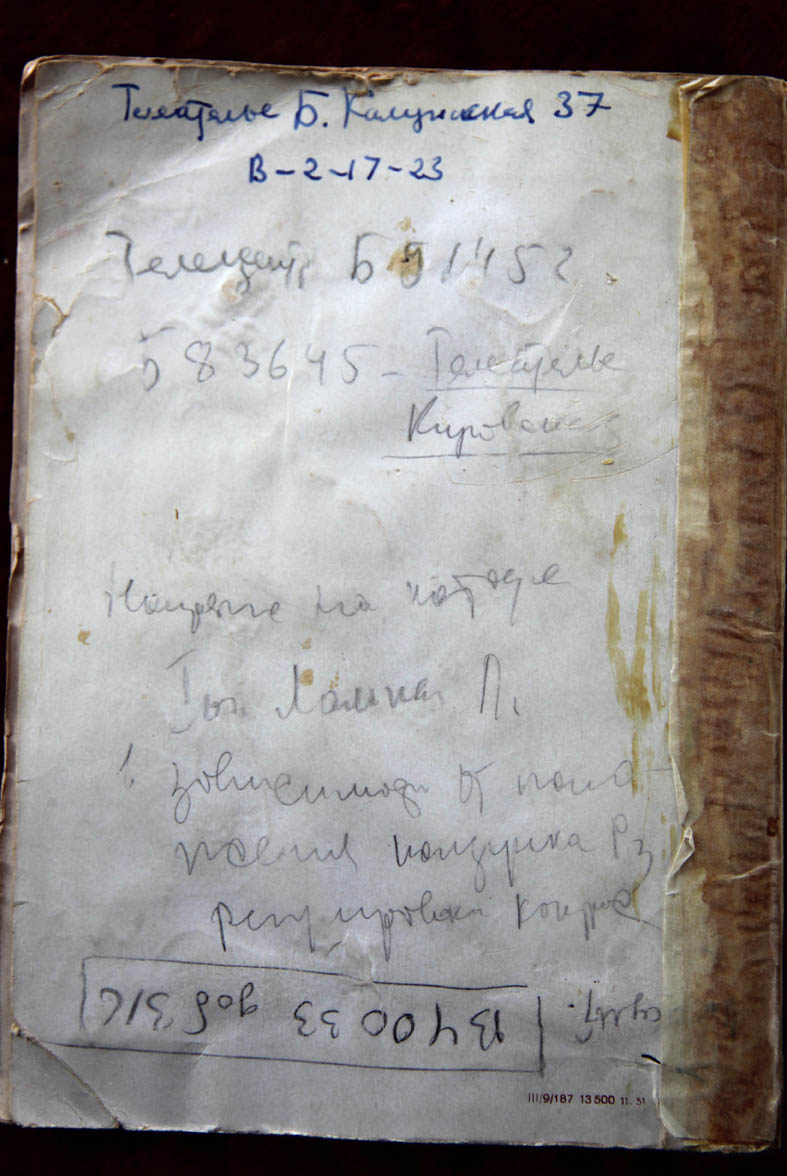 Телеателье Б. Калужская 37
В-2-17-23
Телецентр Б 9 1 4 5 2
Б 8 3 6 4 5 - Телеателье
Кировская
Напряже на катоде
Л.
В зависимости от поло-
жения ползунка R3
регулировки контрас
В 4 00 33 доб 3/C
III/9/187 13 500 11. 51